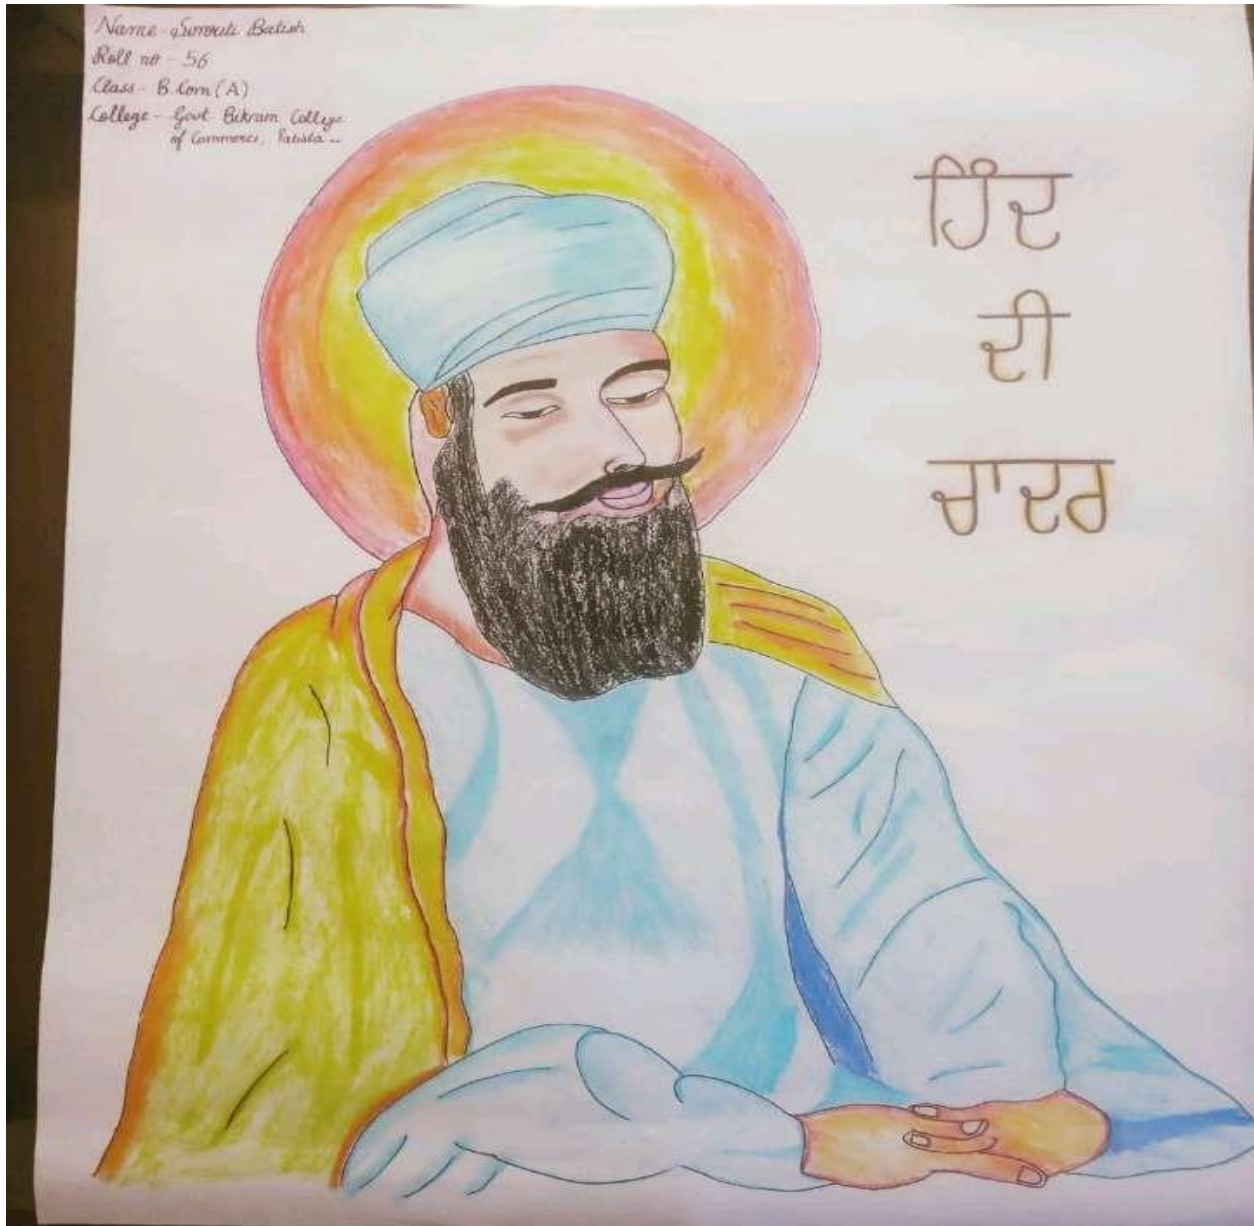 Name - Simrati Batish
Roll no - 56
Class - B.Com (A)
College - Govt Bikram College
of Commerce, Patiala
ਹਿੰਦ
ਦੀ
ਚਾਦਰ